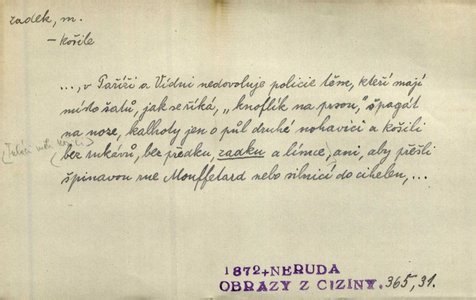 zadek, m.
– košile
..., v Paříži a Vídni nedovoluje policie těm, kteří mají
místo šatů, jak se říká, „knoflík na prsou, špagát
na noze, kalhoty jen o půl druhé nohavici a košili
bez rukávů, bez předku, zadku a límce, ani, aby přešli
špinavou rue Mouffetard nebo silnicí do cihelen, ...
1872+NERUDA
OBRAZY Z CIZINY. 365,31.